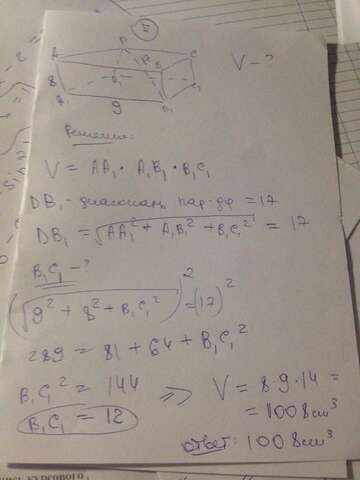 5
D
A B C
V-?
8 D₁ C₁
A₁ 9 B₁
Решение:
V = AA₁ · A₁B₁ · B₁C₁
DB₁ - диагональ пар-да = 17
DB₁ = √AA₁² + A₁B₁² + B₁C₁² = 17
B₁C₁ - ?
(√9² + 8² + B₁C₁²)² = (17)²
289 = 81 + 64 + B₁C₁²
B₁C₁² = 144 => V = 8·9·14 =
B₁C₁ = 12 = 1008 cm³
ответ: 1008 cm³